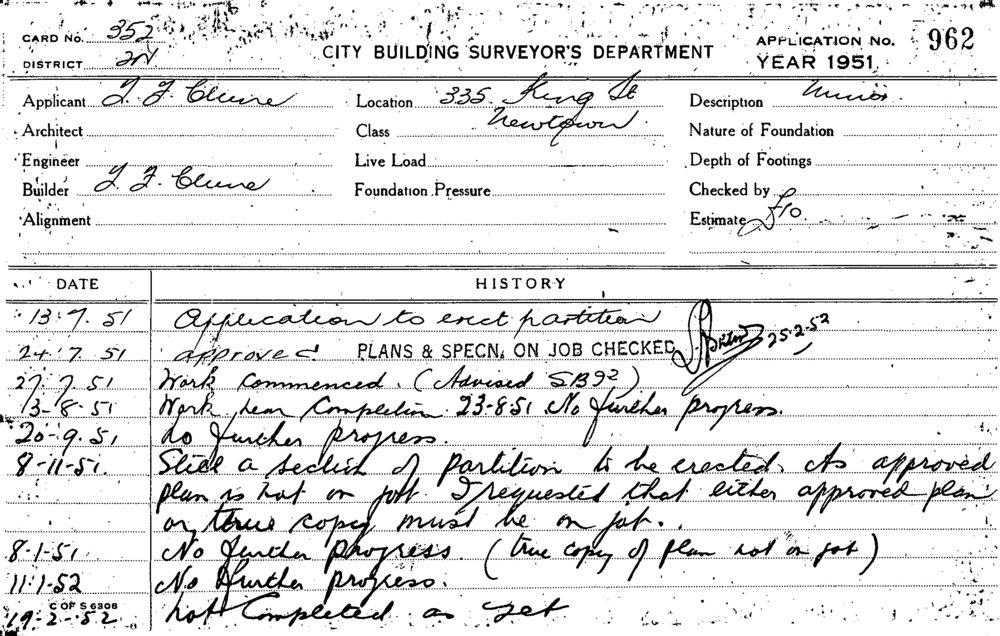 CARD No. 352
DISTRICT
CITY BUILDING SURVEYOR'S DEPARTMENT
APPLICATION No. 962
YEAR 1951.
Applicant J. F. Clune Location 335 King St Description Minor.
Architect Class Newtown Nature of Foundation
Engineer Live Load Depth of Footings
Builder J. F. Clune Foundation Pressure Checked by
Alignment Estimate £10
DATE HISTORY
13.7.51 Application to erect partition
24.7.51 approved PLANS & SPECN. ON JOB CHECKED 25.2.52
27.7.51 Work commenced. (Advised SB92)
13-8-51 Work near Completion 23-8-51 No further progress.
20-9.51 No further progress.
8-11-51. Still a section of partition to be erected. As approved
plan is not on job I requested that either approved plan
or true copy must be on job.
8.1.51 No further progress. (true copy of plan not on job)
11.1.52 No further progress.
C OF S 6308
19-2-52 Not Completed as yet